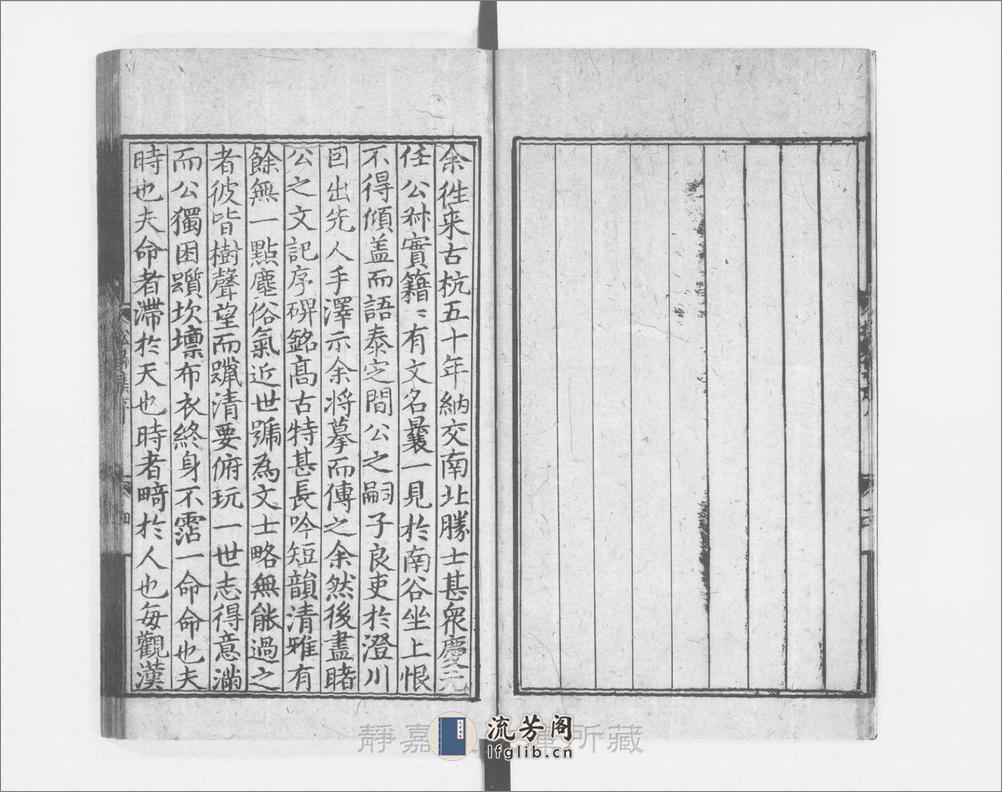 余徃来古杭五十年納交南北勝士甚衆慶元
任公叔實籍〻有文名曩一見於南谷坐上恨
不得傾盖而語泰定間公之嗣子良吏於澄川
囙出先人手澤示余将摹而傳之余然後盡睹
公之文記序碑銘髙古特甚長吟短韻清雅有
餘無一點塵俗氣近世號為文士略無能過之
者彼皆樹聲望而躐清要俯玩一世志得意滿
而公獨困躓坎壈布衣終身不霑一命命也夫
時也夫命者滯於天也時者畸於人也每觀漢
四
靜嘉
所藏
流芳阁
lfglib.cn